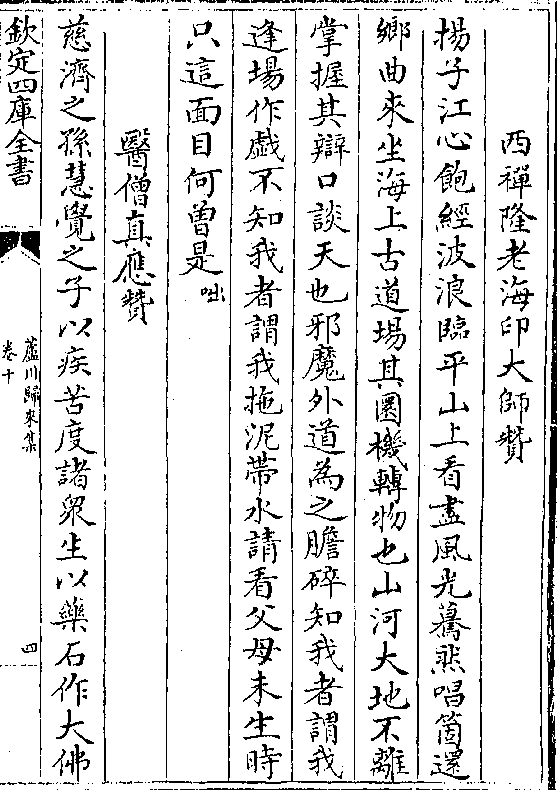 西禪隆老海印大師贊
揚子江心飽經波浪臨平山上看盡風光驀然唱箇還
鄉曲來坐海上古道場其圓機轉物也山河大地不離
掌握其辯口談天也邪魔外道為之膽碎知我者謂我
逢場作戲不知我者謂我拖泥帶水請看父母未生時
只這面目何曾是咄
醫僧真應贊
慈濟之孫慧覺之子以疾苦度諸眾生以藥石作大佛
欽定四庫全書
蘆川歸來集
卷十
四